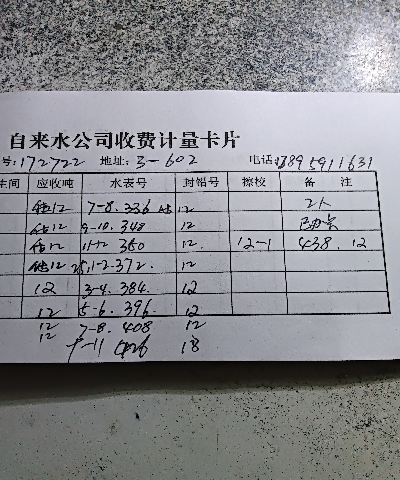 自来水公司收费计量卡片
号:172722 地址:3-602 电话
间 应收吨 水表号 封铅号 擦校 备 注
估12 7-8.336 12 2人
估12 9-10.348 12
估12 11-12 360 12. 12-1 438.12
估12 1-2-372. 12
12 3-4.384. 12
12 5-6.396. 12
12 7-8.408 12
12 18